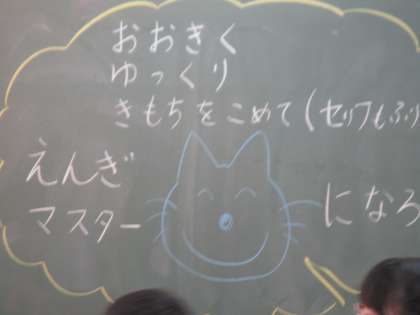 おおきく
ゆっくり
きもちをこめて(セリフもふり
えんぎ
マスター になろ